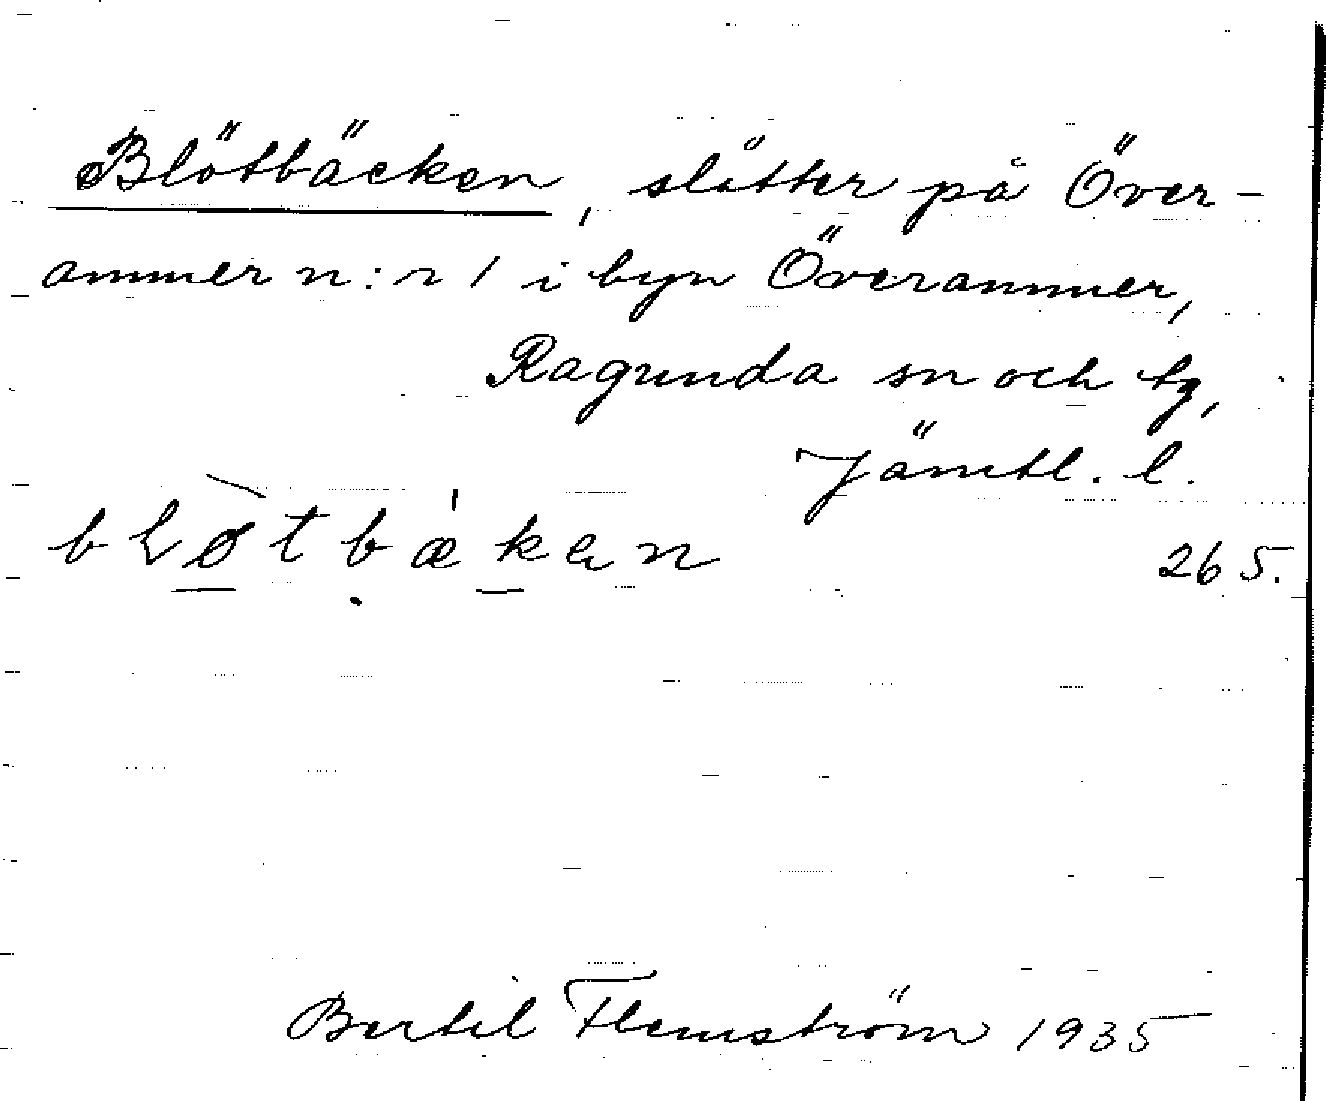 Blötbäcken, slåtter på Över-
ammer n:r 1 i byn Överammer,
Ragunda sn och tg,
Jämtl. l.
265.
Bertil Flemström 1935